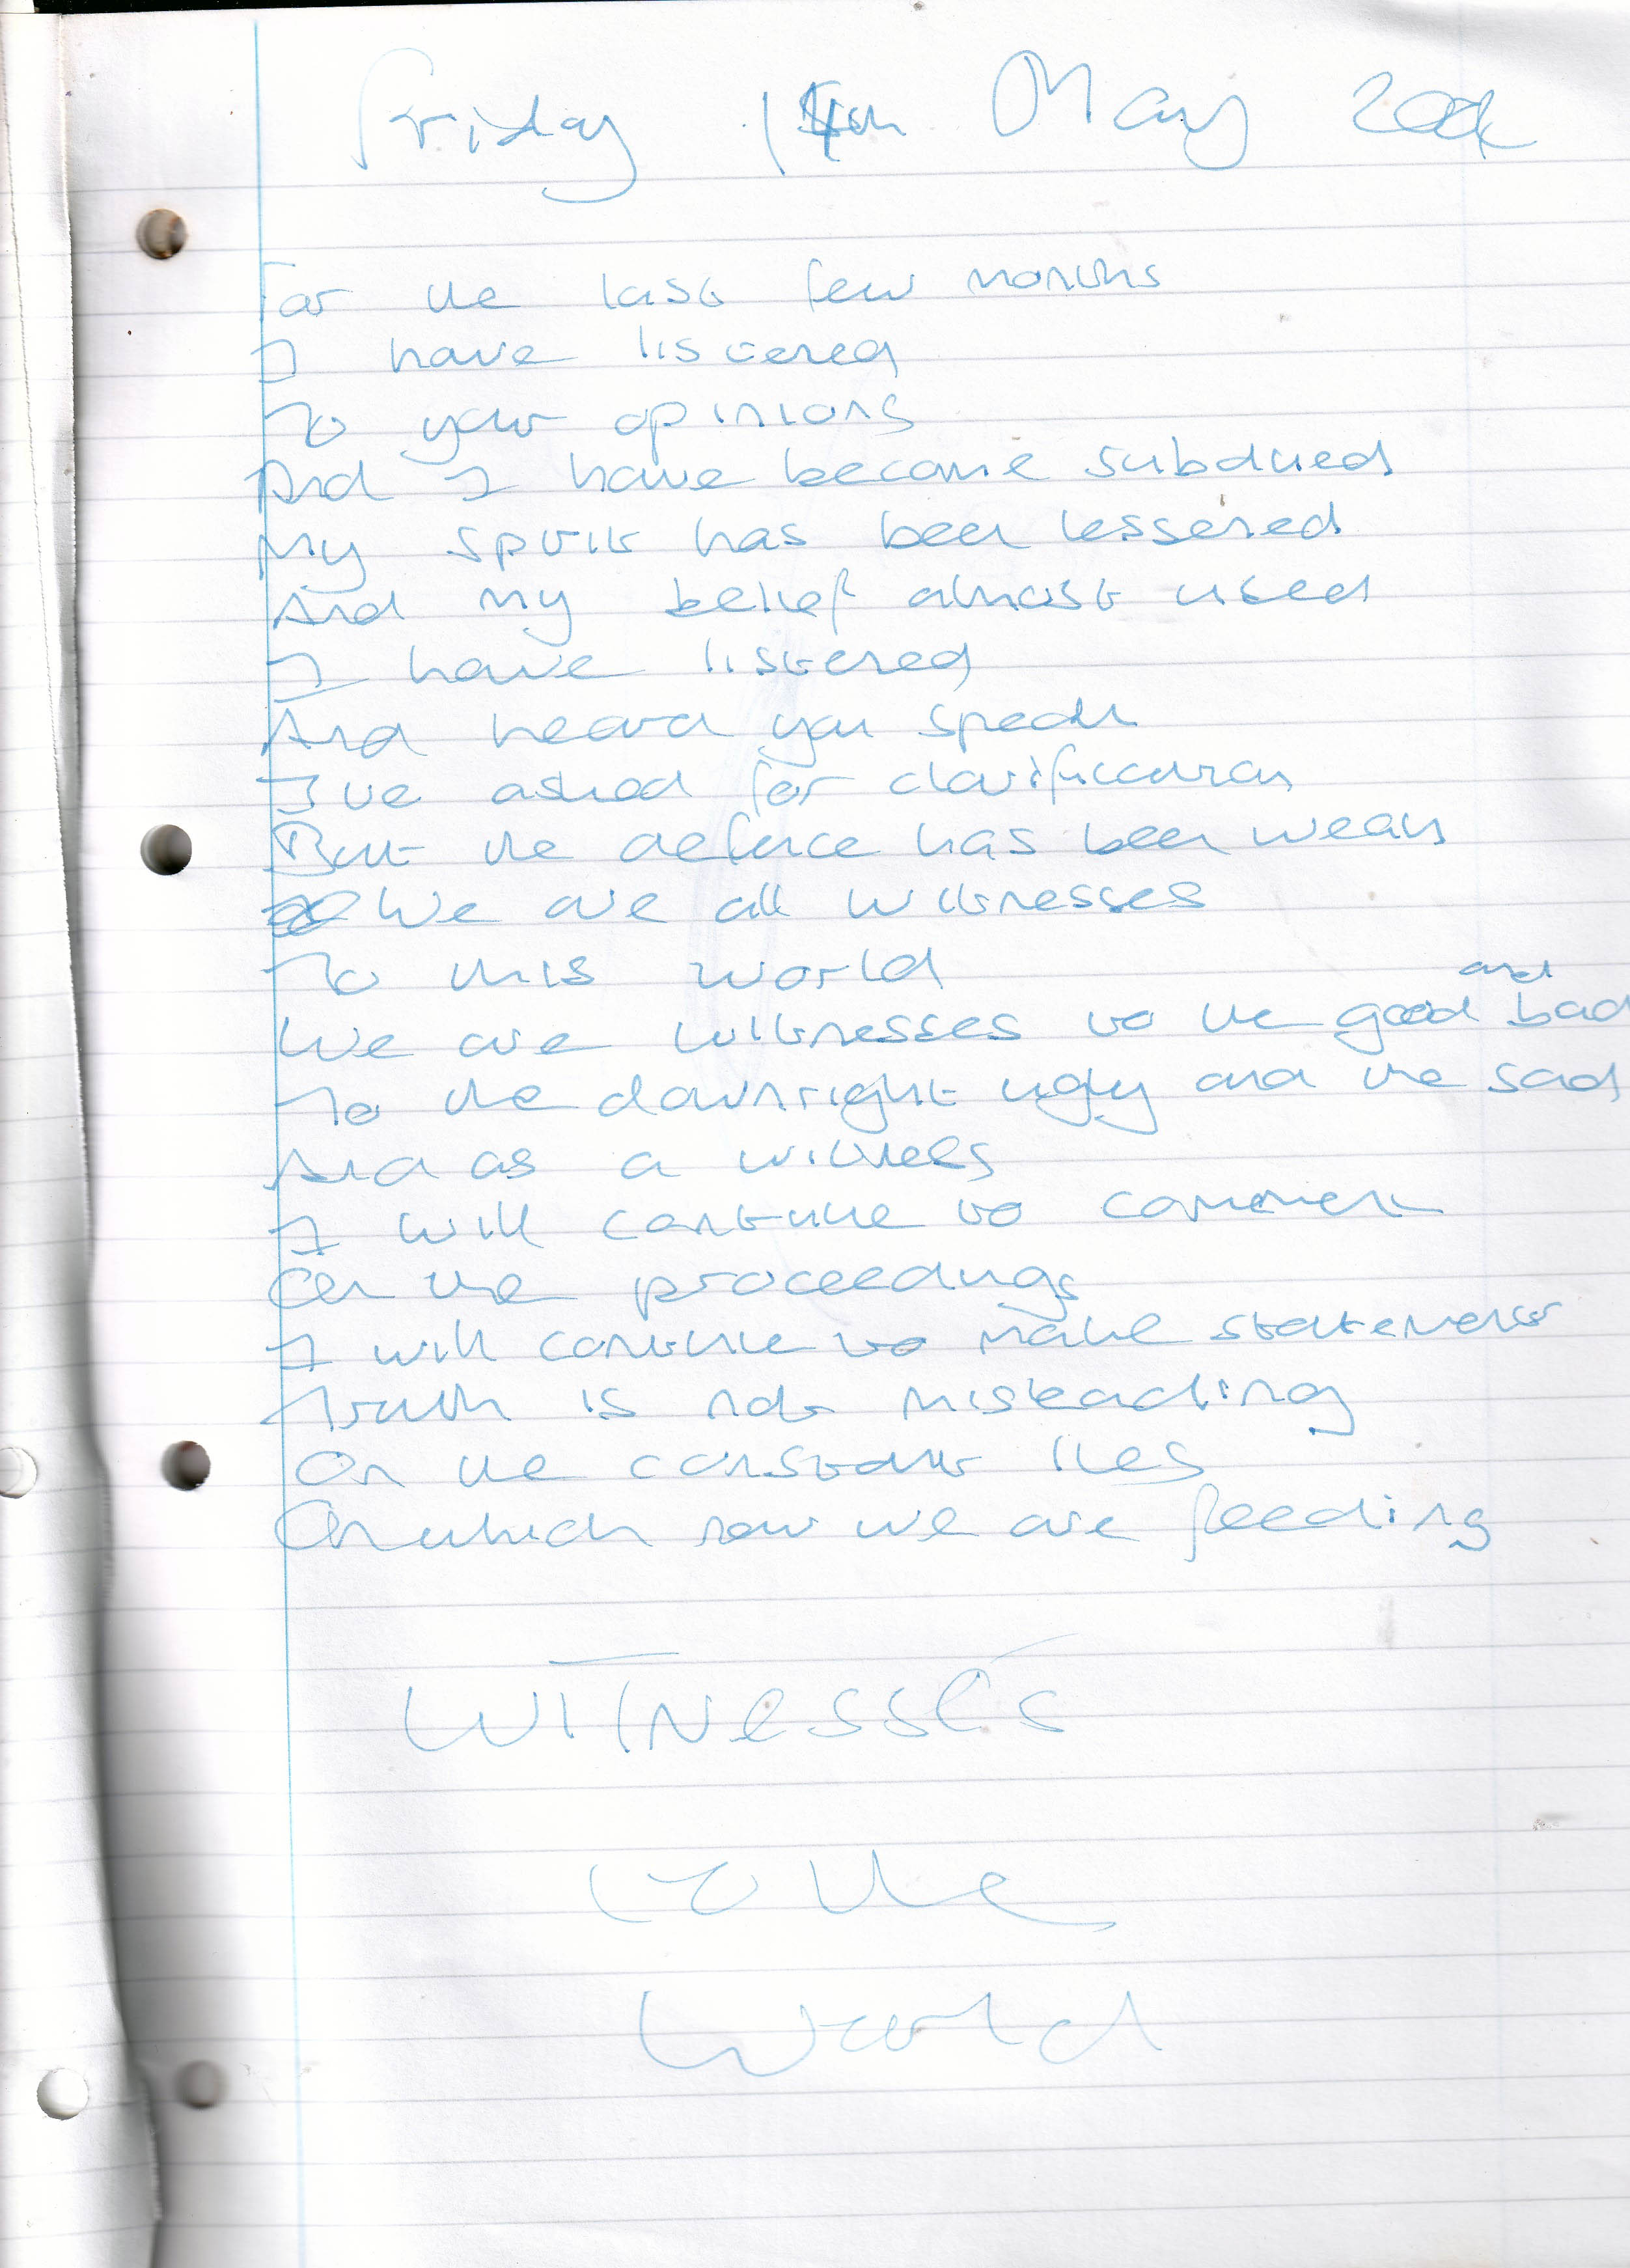 Friday 14th May 2004
For the last few months
I have listened
To your opinions
And I have become subdued
My spirit has been lessened
And my belief almost used
I have listened
And heard you speak
I've asked for clarification
But the defence has been weak
We are all witnesses
To this world
We are witnesses to the good and bad
To the downright ugly and the sad
And as a witness
I will continue to comment
On the proceedings
I will continue to make statements
Truth is not misleading
On the constant lies
On which now we are feeding
WITNESSES
to the
World